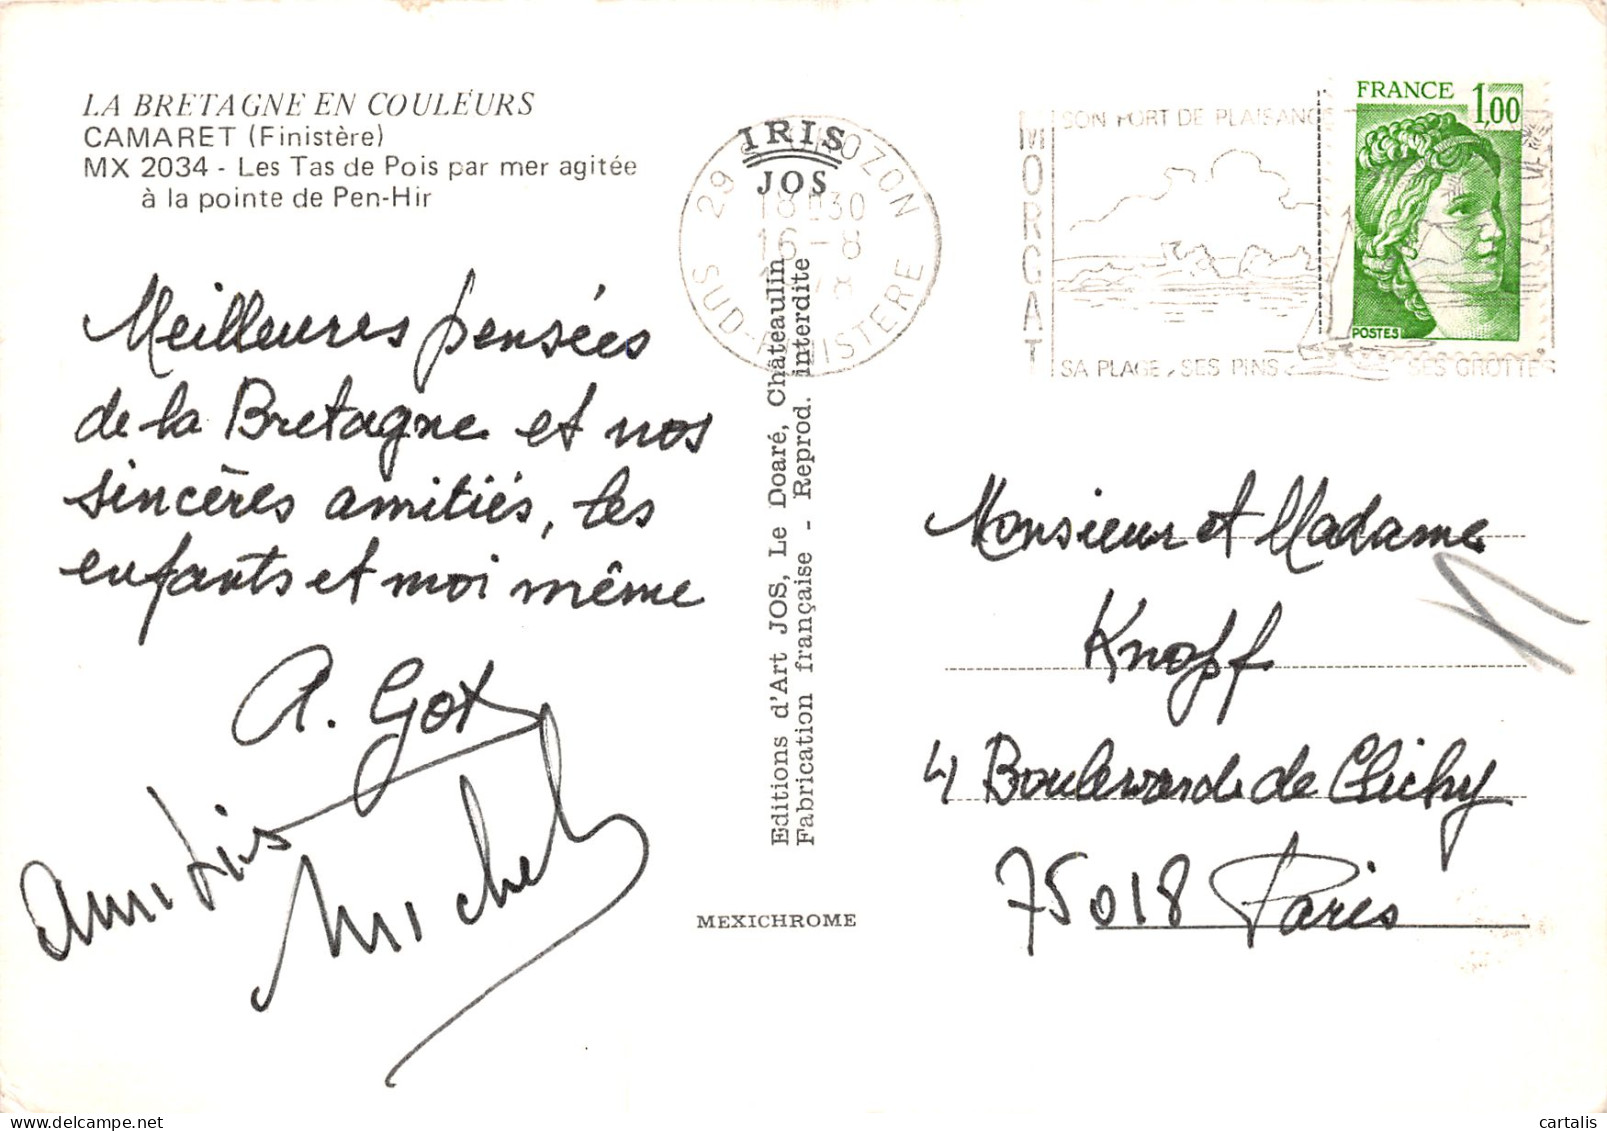 LA BRETAGNE EN COULEURS
CAMARET (Finistère)
MX 2034 - Les Tas de Pois par mer agitée
à la pointe de Pen-Hir
Meilleures pensées
de la Bretagne et nos
sincères amitiés, les
enfants et moi même
A. Got
amitiés
Michel
IRIS
JOS
29 OZON
18H30
16-8
SUD-FINISTERE
Editions d'Art JOS, Le Doaré, Châteaulin
Fabrication française - Reprod. interdite
MEXICHROME
MORGAT
SON PORT DE PLAISANC
SA PLAGE, SES PINS
SES GROTTES
FRANCE 1,00
POSTES
Monsieur et Madame
Knopf
4 Boulevard de Clichy
75018 Paris
cartalis